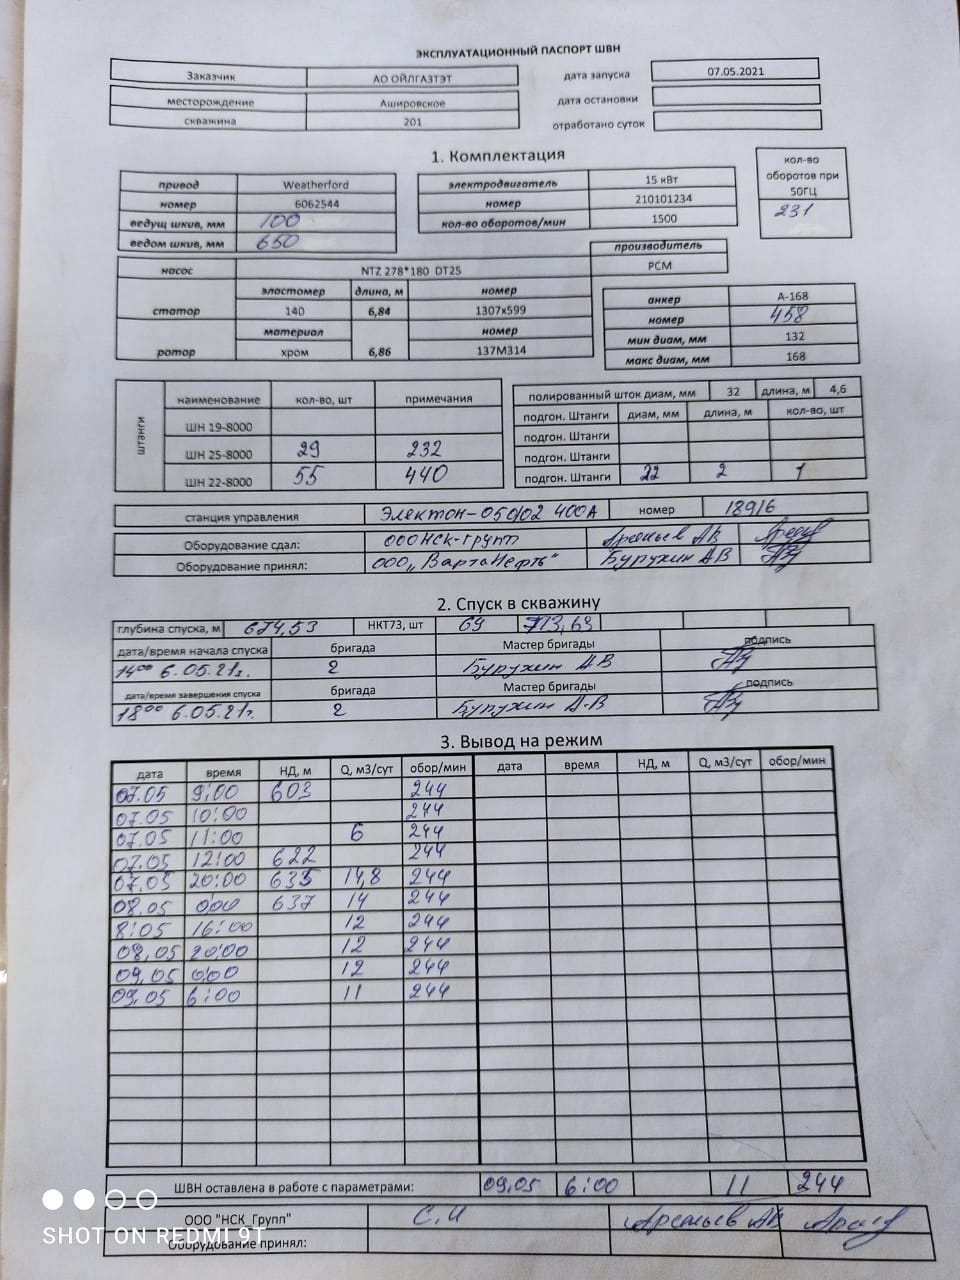 ЭКСПЛУАТАЦИОННЫЙ ПАСПОРТ ШВН
Заказчик АО ОЙЛГАЗТЭТ дата запуска 07.05.2021
месторождение Ашировское дата остановки
скважина 201 отработано суток
1. Комплектация
кол-во оборотов при 50ГЦ 231
привод Weatherford электродвигатель 15 кВт
номер 6062544 номер 210101234
ведущ шкив, мм 100 кол-во оборотов/мин 1500
ведом шкив, мм 650
производитель
насос NTZ 278*180 DT25 РСМ
эластомер длина, м номер
статор 140 6,84 1307х599
материал номер
ротор хром 6,86 137М314
анкер А-168
номер 458
мин диам, мм 132
макс диам, мм 168
штанги наименование кол-во, шт примечания
ШН 19-8000
ШН 25-8000 29 232
ШН 22-8000 55 440
полированный шток диам, мм 32 длина, м 4,6
подгон. Штанги диам, мм длина, м кол-во, шт
подгон. Штанги
подгон. Штанги
подгон. Штанги 22 2 1
станция управления Электон-05 400А номер 18916
Оборудование сдал: ООО НСК-Групп Арсльев АВ
Оборудование принял: ООО „ВартаНефть" Бурухин АВ
2. Спуск в скважину
глубина спуска, м 674,53 НКТ73, шт 69 713,63
дата/время начала спуска бригада Мастер бригады подпись
14⁰⁰ 6.05.21г. 2 Бурухин АВ
дата/время завершения спуска бригада Мастер бригады подпись
18⁰⁰ 6.05.21г. 2 Бурухин А.В
3. Вывод на режим
дата время НД, м Q, м3/сут обор/мин дата время НД, м Q, м3/сут обор/мин
07.05 9:00 603 244
07.05 10:00 244
07.05 11:00 6 244
07.05 12:00 622 244
07.05 20:00 635 14,8 244
08.05 0:00 637 14 244
8:05 16:00 12 244
08.05 20:00 12 244
09.05 0:00 12 244
09.05 6:00 11 244
ШВН оставлена в работе с параметрами: 09.05 6:00 11 244
ООО "НСК_Групп" С.И Арсльев АВ
Оборудование принял:
SHOT ON REDMI 9T